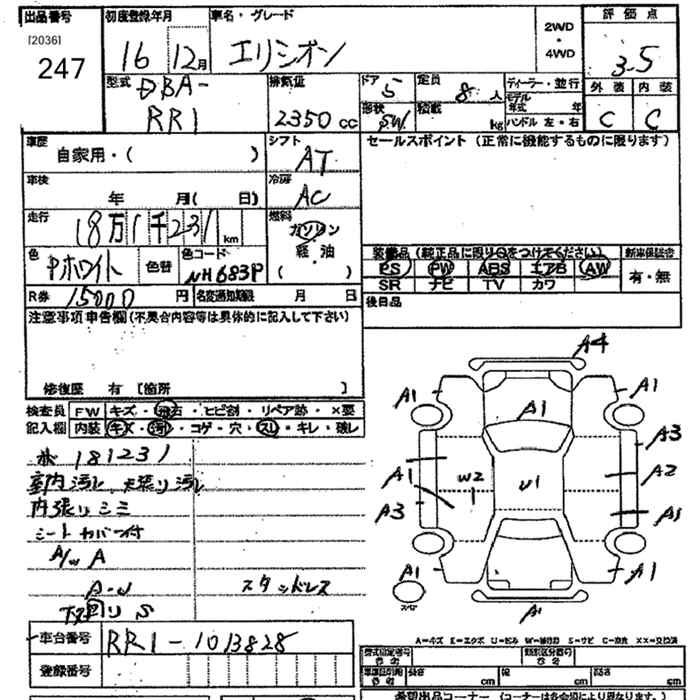 出品番号 初度登録年月 車名・グレード 評価点
[2036]
247
16 12月 エリシオン 2WD・4WD 3.5
型式 DBA-RR1
排気量 2350 cc
ドア 5 定員 8人 ディーラー・並行 外装 内装
形状 SW 積載 kg モデル年式 年
ハンドル 左・右 C C
車歴 自家用・( )
シフト AT
セールスポイント(正常に機能するものに限ります)
車検 年 月( 日)
冷房 AC
走行 18万1千231km
燃料 ガソリン・軽油 ( )
色 Pホワイト 色替 色コード NH683P
装備品(純正品に限り○をつけてください) 新車保証書
PS PW ABS エアB AW 有・無
SR ナビ TV カワ
R券 15000円 名変通知期限 月 日
後日品
注意事項申告欄(不具合内容等は具体的に記入して下さい)
修復歴 有 [箇所 ]
検査員 FW キズ・飛石・ヒビ割・リペア跡・×要
記入欄 内装 キズ・汚れ・コゲ・穴・スレ・キレ・破レ
181231
室内汚レ 天張り汚レ
内張りシミ
シートカバー付
A/W A
A-U スタッドレス
下回り S
A4
A1 A1 A1
A3
A1 W2 U1 A2
A3 A1
A1 A1
スペア A1
A=キズ E=エクボ U=ヘコミ W=補修跡 S=サビ C=腐食 XX=交換済
車台番号 RR1-1013828
登録番号
型式指定番号 類別区分番号
長さ cm 幅 cm 高さ cm
希望出品コーナー(コーナーは各会場により異なります。)